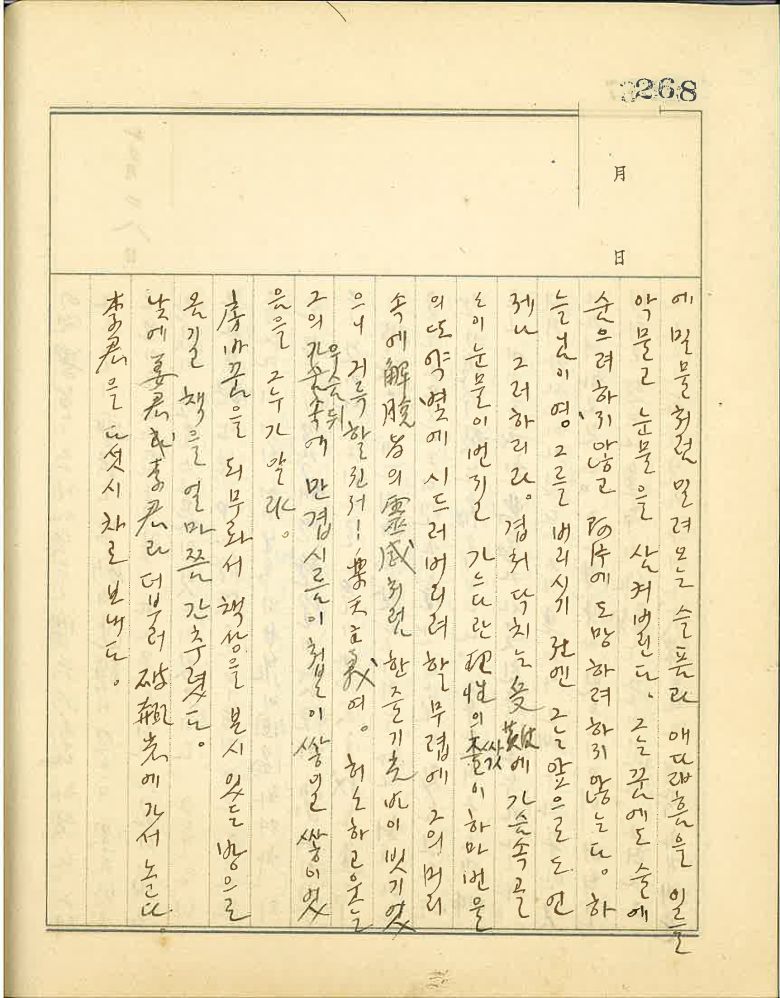 268
月
日
에 밀물처럼 밀려 오는 슬픔과 애닯흠을 일을
악물고 눈물을 삼켜버린다. 그는 꿈에도 술에
숨으려하지 않고 阿片에 도망하려 하지 않는다. 하
늘님이 영 그를 버리시기 전엔 그는 앞으로도 언
제나 그러하리라. 겹쳐 닥치는 受難에 가슴속 골
소이 눈물이 번지고 가느다란 理性의 싹이 하마 번을
의 또약볓에 시드러버리려 할 무렵에 그의 머리
속에 解脫者의 靈感처럼 한줄기 光明이 빗기였
으니 거룩할진저! 樂天主義여. 허소하고 웃는
그의 웃음 뒤에 만겹 시름이 첩첩이 쌓이고 쌓이였
음을 그 누가 알랴.
房바꿈을 되무와서 책상을 본시 있든 방으로
옴기고 책을 얼마쯤 간추렸다.
낮에 姜君 李君과 더부러 에 가서 놀다
李君을 다섯시 차로 보내다.